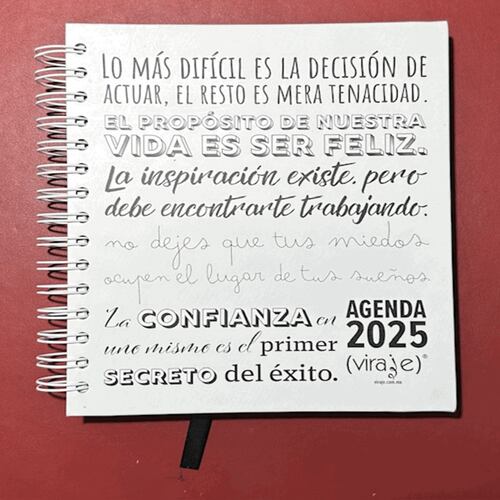 LO MÁS DIFÍCIL ES LA DECISIÓN DE
ACTUAR, EL RESTO ES MERA TENACIDAD.
EL PROPÓSITO DE NUESTRA
VIDA ES SER FELIZ.
La inspiración existe, pero
debe encontrarte trabajando.
no dejes que tus miedos
ocupen el lugar de tus sueños
La CONFIANZA en
uno mismo es el primer
SECRETO del éxito.
AGENDA
2025
(viraje)®
viraje.com.mx